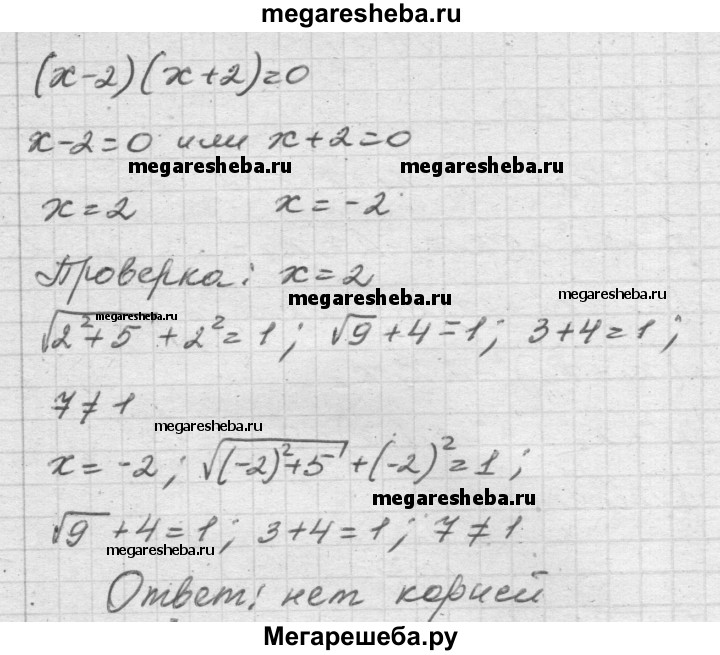 megaresheba.ru
(x-2)(x+2)=0
x-2=0 или x+2=0
megaresheba.ru megaresheba.ru
x=2 x=-2
Проверка: x=2
megaresheba.ru megaresheba.ru
√(2²+5) + 2² = 1; √9 + 4 = 1; 3+4=1;
megaresheba.ru
7≠1
megaresheba.ru
x=-2; √((-2)²+5) + (-2)² = 1;
megaresheba.ru
√9 + 4 = 1; 3+4=1; 7≠1
megaresheba.ru
Ответ: нет корней
Мегарешеба.ру